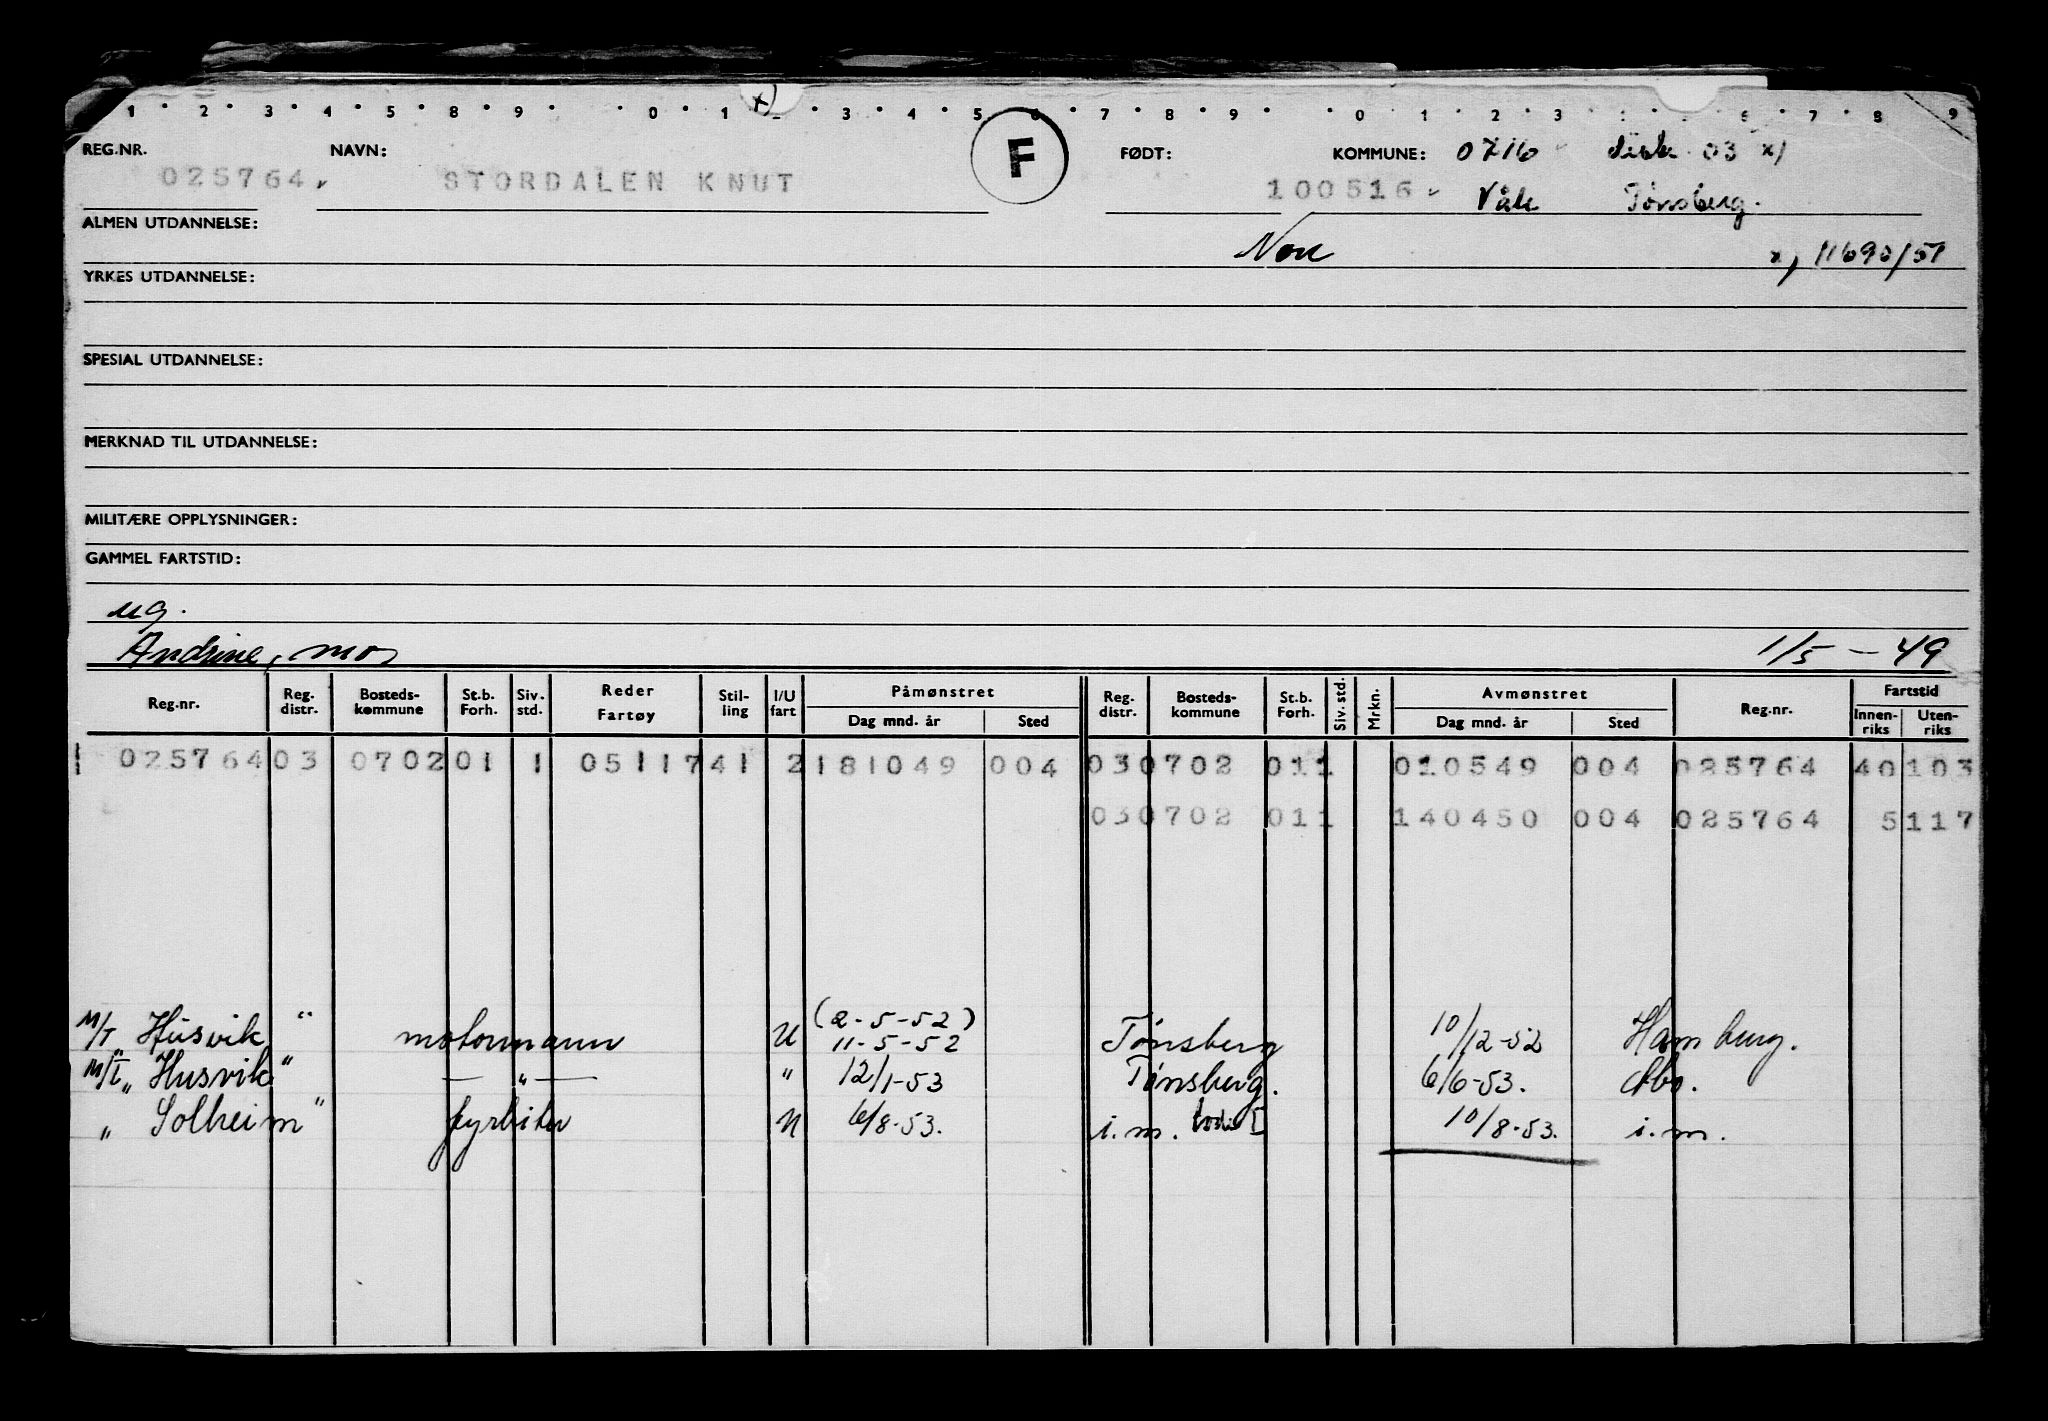 1 2 3 4 5 8 9 0 1 x) 3 4 5 6 7 8 9 0 1 2 3 6 7 8 9
REG.NR. NAVN: F FØDT: KOMMUNE: 0716 03 x)
025764 STORDALEN KNUT 100516 Våle Tønsberg.
ALMEN UTDANNELSE: Non x) 11690/51
YRKES UTDANNELSE:
SPESIAL UTDANNELSE:
MERKNAD TIL UTDANNELSE:
MILITÆRE OPPLYSNINGER:
GAMMEL FARTSTID:
ug.
Andrine, mor 1/5 - 49
Reg.nr. Reg. distr. Bosteds- kommune St.b. Forh. Siv. std. Reder Fartøy Stil- ling I/U fart Påmønstret Dag mnd. år Sted Reg. distr. Bosteds- kommune St.b. Forh. Siv. std. Mrkn. Avmønstret Dag mnd. år Sted Reg.nr. Fartstid Innen- riks Uten- riks
025764 03 0702 01 1 0511741 2 181049 004 030702 011 010549 004 025764 40 103
030702 011 140450 004 025764 5 117
(2-5-52)
M/T "Husvik" motormann U 11-5-52 Tønsberg 10/12-52 Hamburg.
M/T "Husvik" — " — " 12/1-53 Tønsberg. 6/6-53. Abo.
" Solheim" fyrbøter U 6/8-53. i.m. 10/8-53. i.m.